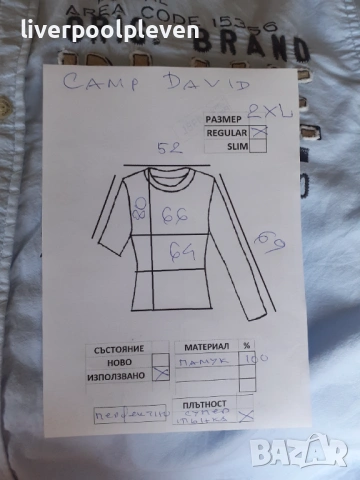 liverpoolpleven
AREA CODE 15356
BRAND
CAMP DAVID
РАЗМЕР 2XL
REGULAR X
SLIM
52
80
66
64
69
СЪСТОЯНИЕ
НОВО
ИЗПОЛЗВАНО X
МАТЕРИАЛ %
ПАМУК 100
ПЛЪТНОСТ
СУПЕР
X
BAZAR